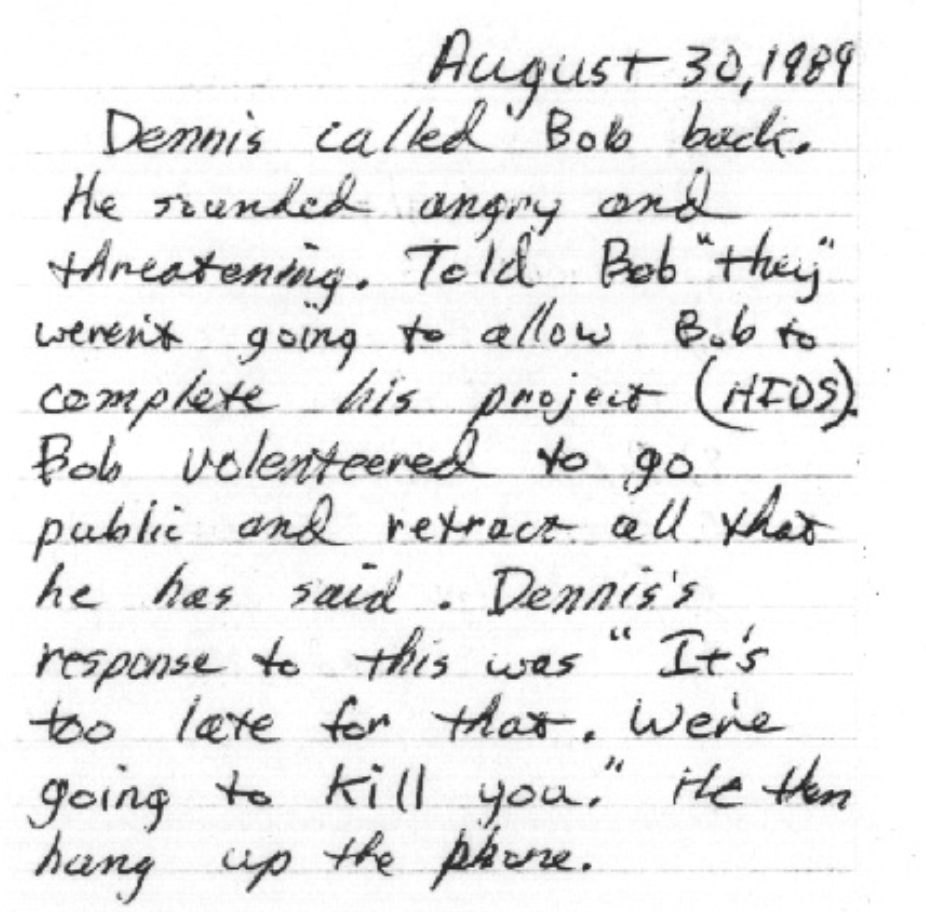 August 30, 1989
Dennis called Bob back.
He sounded angry and
threatening. Told Bob "they"
weren't going to allow Bob to
complete his project (HIDS).
Bob volenteered to go
public and retract all that
he has said. Dennis's
response to this was "It's
too late for that. We're
going to kill you." He then
hung up the phone.